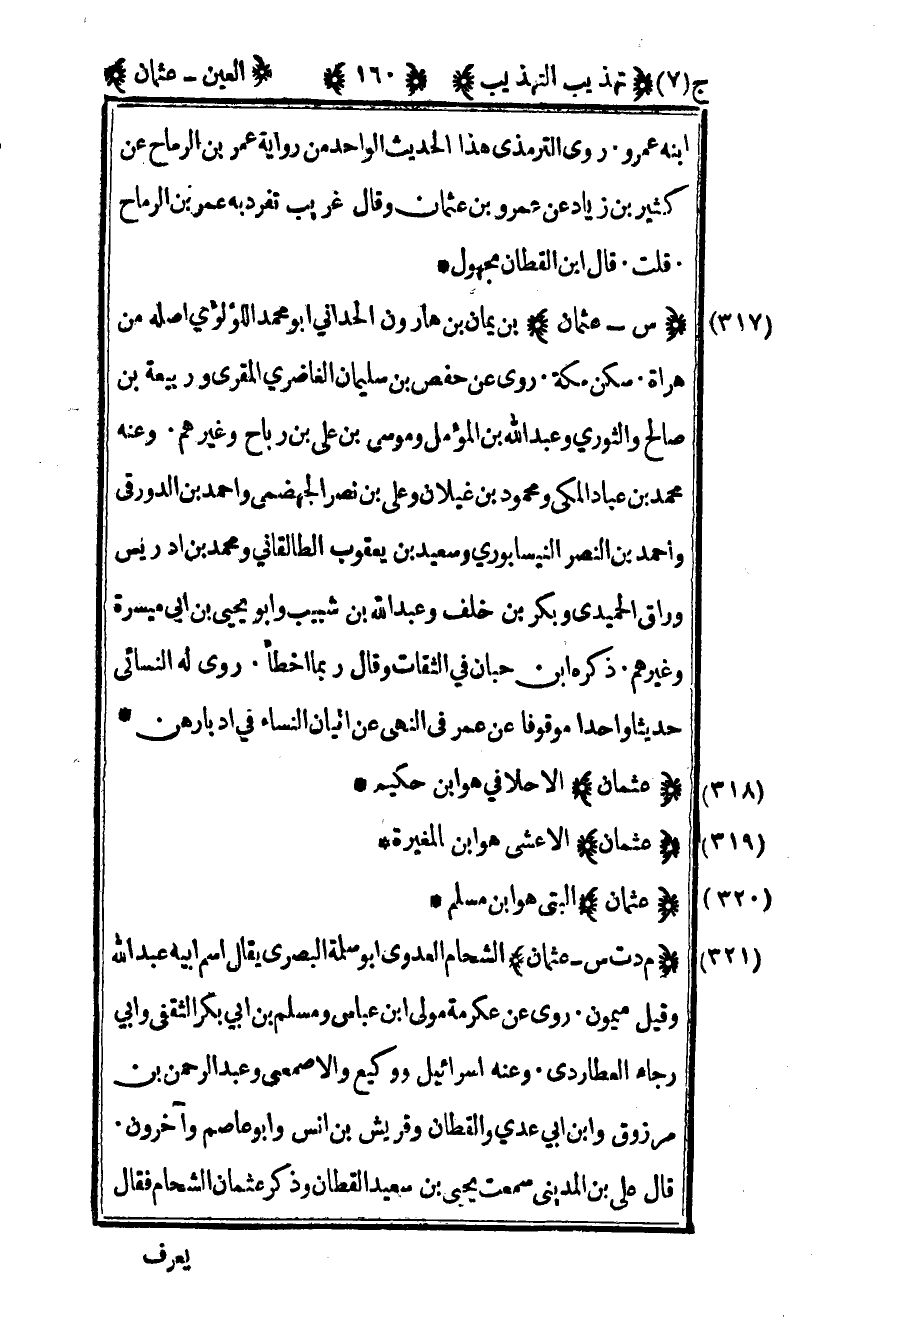 ج(٧) ﴿ تهذيب التهذيب ﴾ ﴿ ١٦٠ ﴾ ﴿ العين ـ عثمان ﴾
ابنه عمرو٠ روى الترمذى هذا الحديث الواحد من رواية عمر بن الرماح عن
كثير بن زياد عن عمرو بن عثمان وقال غريب تفرد به عمر بن الرماح
٠ قلت ٠ قال ابن القطان مجهول*
(٣١٧) ﴿ س ـ عثمان ﴾ بن يمان بن هارون الحداني ابو محمد اللؤلؤي اصله من
هراة ٠ سكن مكة ٠ روى عن حفص بن سليمان الغاضري المقرى وربيعة بن
صالح والثوري وعبد الله بن المؤمل وموسى بن على بن رباح وغيرهم ٠ وعنه
محمد بن عباد المكى ومحمود بن غيلان وعلى بن نصر الجهضمى واحمد بن الدورقى
واحمد بن النصر النيسابوري وسعيد بن يعقوب الطالقاني ومحمد بن ادريس
وراق الحميدى وبكر بن خلف وعبد الله بن شبيب وابو يحيى بن ابي ميسرة
وغيرهم ٠ ذكره ابن حبان في الثقات وقال ربما اخطأ ٠ روى له النسائى
حديثا واحدا موقوفا عن عمر فى النهى عن اتيان النساء في ادبارهن *
(٣١٨) ﴿ عثمان ﴾ الاحلافي هو ابن حكيم *
(٣١٩) ﴿ عثمان ﴾ الاعشى هو ابن المغيرة*
(٣٢٠) ﴿ عثمان ﴾ البتى هو ابن مسلم *
(٣٢١) ﴿ م د ت س ـ عثمان ﴾ الشحام العدوى ابو سلمة البصرى يقال اسم ابيه عبد الله
وقيل ميمون ٠ روى عن عكرمة مولى ابن عباس ومسلم بن ابي بكر الثقفى وابي
رجاء العطاردى ٠ وعنه اسرائيل ووكيع والاصمعى وعبد الرحمن بن
مرزوق وابن ابي عدي والقطان وقريش بن انس وابو عاصم وآخرون ٠
قال على بن المدينى سمعت يحيى بن سعيد القطان وذكر عثمان الشحام فقال
يعرف